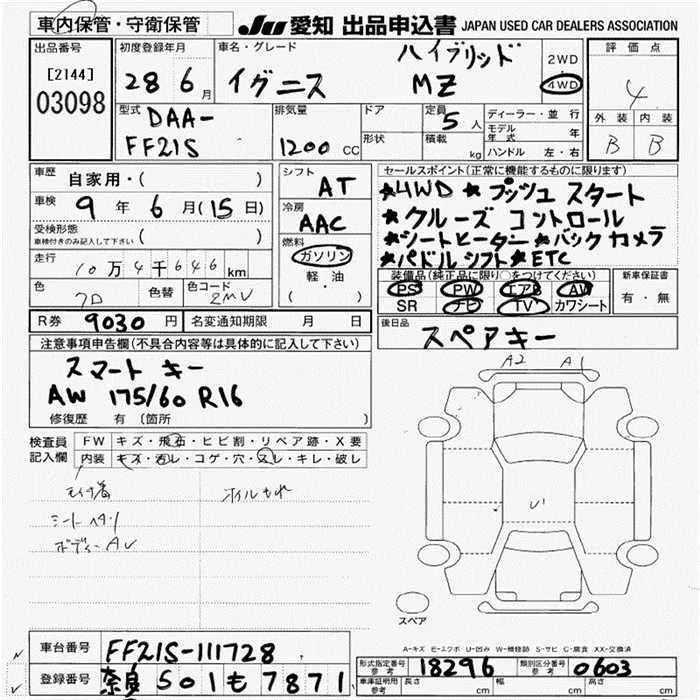 車内保管・守衛保管
JU 愛知 出品申込書 JAPAN USED CAR DEALERS ASSOCIATION
出品番号
[2144]
03098
初度登録年月
28 6月
車名・グレード
イグニス ハイブリッド MZ
2WD
・
4WD
評価点
4
外装 内装
B B
型式
DAA-
FF21S
排気量
1200 CC
ドア
形状
定員
5 人
積載
kg
ディーラー・並行
モデル年式 年
ハンドル 左・右
車歴 自家用・( )
車検 9年 6月(15日)
受検形態
車検付きのみ記入して下さい ( )
走行
10万4千646km
色
ZQ
色替
色コード
ZMV
シフト
AT
冷房
AAC
燃料
ガソリン
・
軽・油
( )
セールスポイント(正常に機能するものに限ります)
★4WD ★プッシュスタート
★クルーズコントロール
★シートヒーター★バックカメラ
★パドルシフト★ETC
装備品(純正品に限り○をつけてください)
PS PW エアB AW
SR ナビ TV カワシート
新車保証書
有・無
R券 9030円 名変通知期限 月 日
後日品
スペアキー
注意事項申告欄(不具合内容等は具体的に記入して下さい)
スマートキー
AW 175/60 R16
修復歴 有 〔箇所 〕
検査員
記入欄
FW キズ・飛石・ヒビ割・リペア跡・X要
内装 キズ・汚レ・コゲ・穴・スレ・キレ・破レ
A2 A1
シートヘタリ
ボディーAU
U1
スペア
A-キズ E-エクボ U-凹み W-補修跡 S-サビ C-腐食 XX-交換済
車台番号 FF21S-111728
登録番号 奈良 501 も 7871
形式指定番号
参考
18296
類別区分番号
参考
0603
車庫証明用
参考
長さ cm
幅 cm
高さ cm